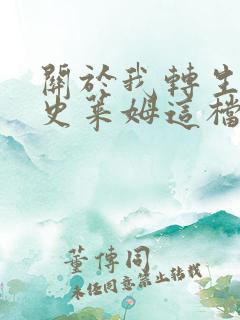 關於我轉生
史萊姆這檔
董傳同
未经同意禁止转载